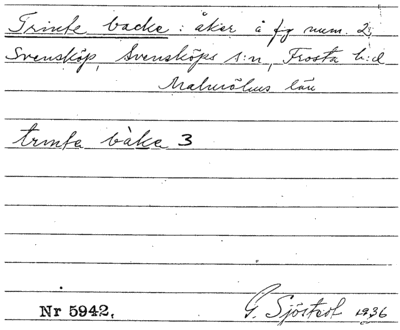 Trinte backe : åker å fg num. 2;
Svensköp, Svensköps s:n, Frosta h:d
Malmöhus län
trınte bàke 3
Nr 5942. G. Sjöstedt 1936